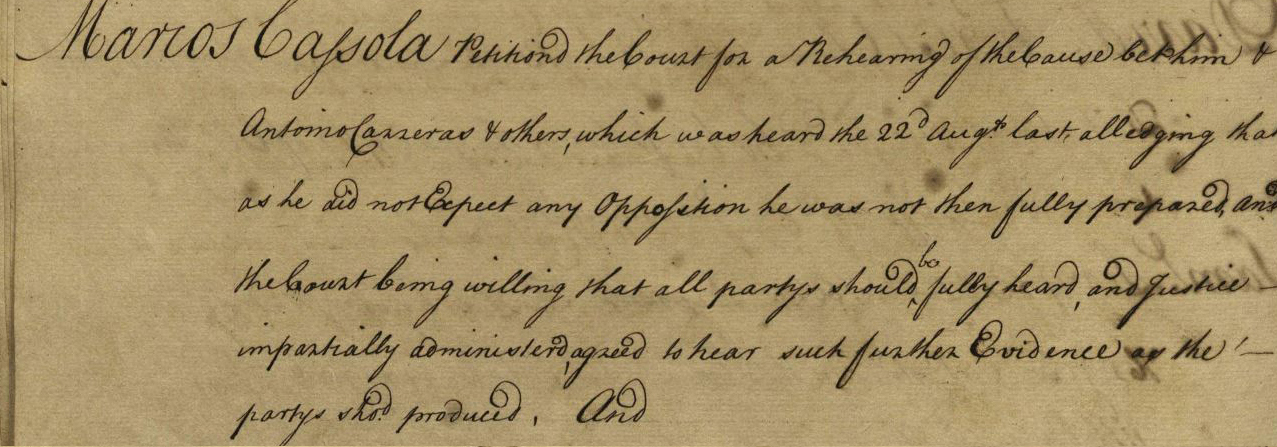 Marcos Cassola Petitiond the Court for a Rehearing of the Cause bet him &
Antonio Carreras & others, which was heard the 22d Augt last, alledging that
as he did not Expect any Opposition he was not then fully prepared, and
the Court being willing that all partys should be fully heard, and Justice
impartially administerd, agreed to hear such further Evidence as the
partys shod produced, And